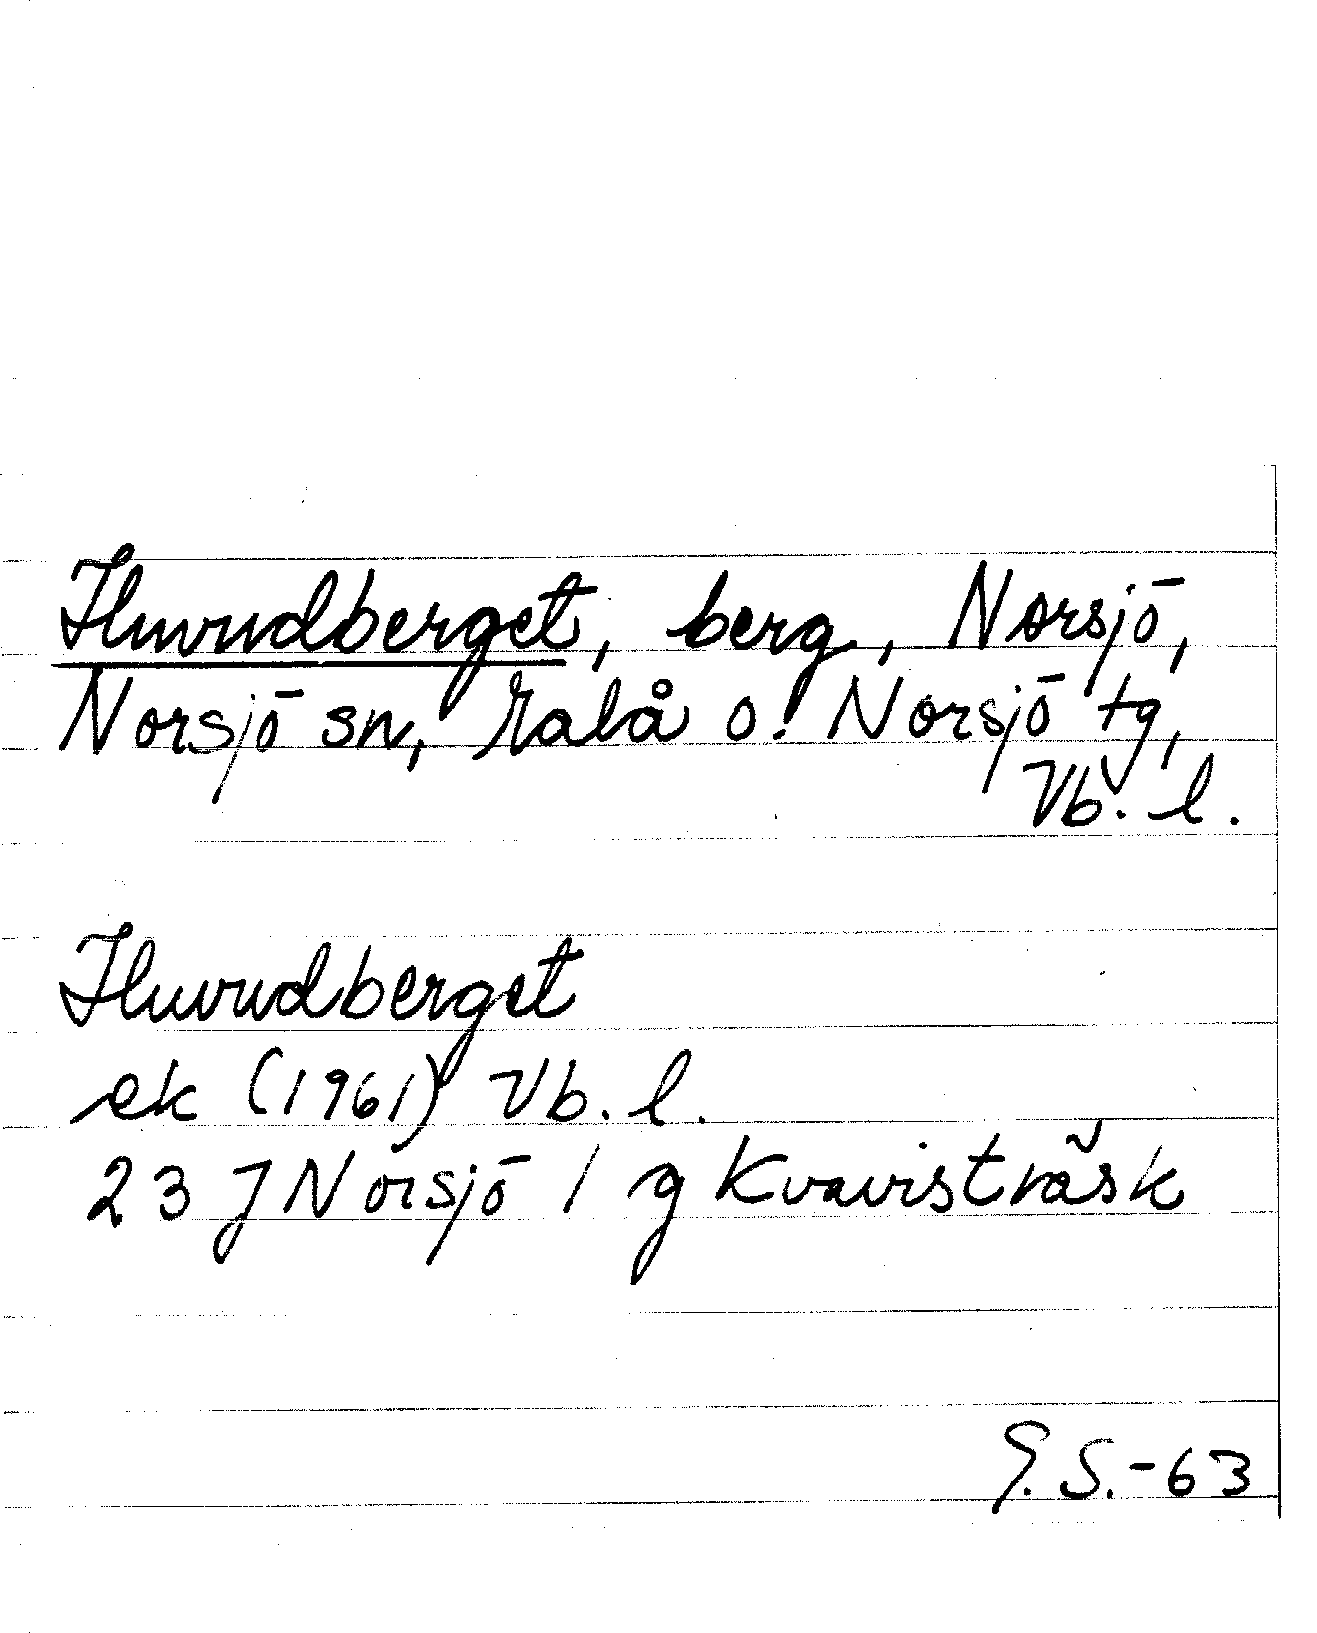 Huvudberget, berg, Norsjö,
Norsjö sn, Malå o. Norsjö tg,
Vb. l.
Huvudberget
ek (1961) Vb. l.
23 J Norsjö / g Kvavisträsk
G.S.-63